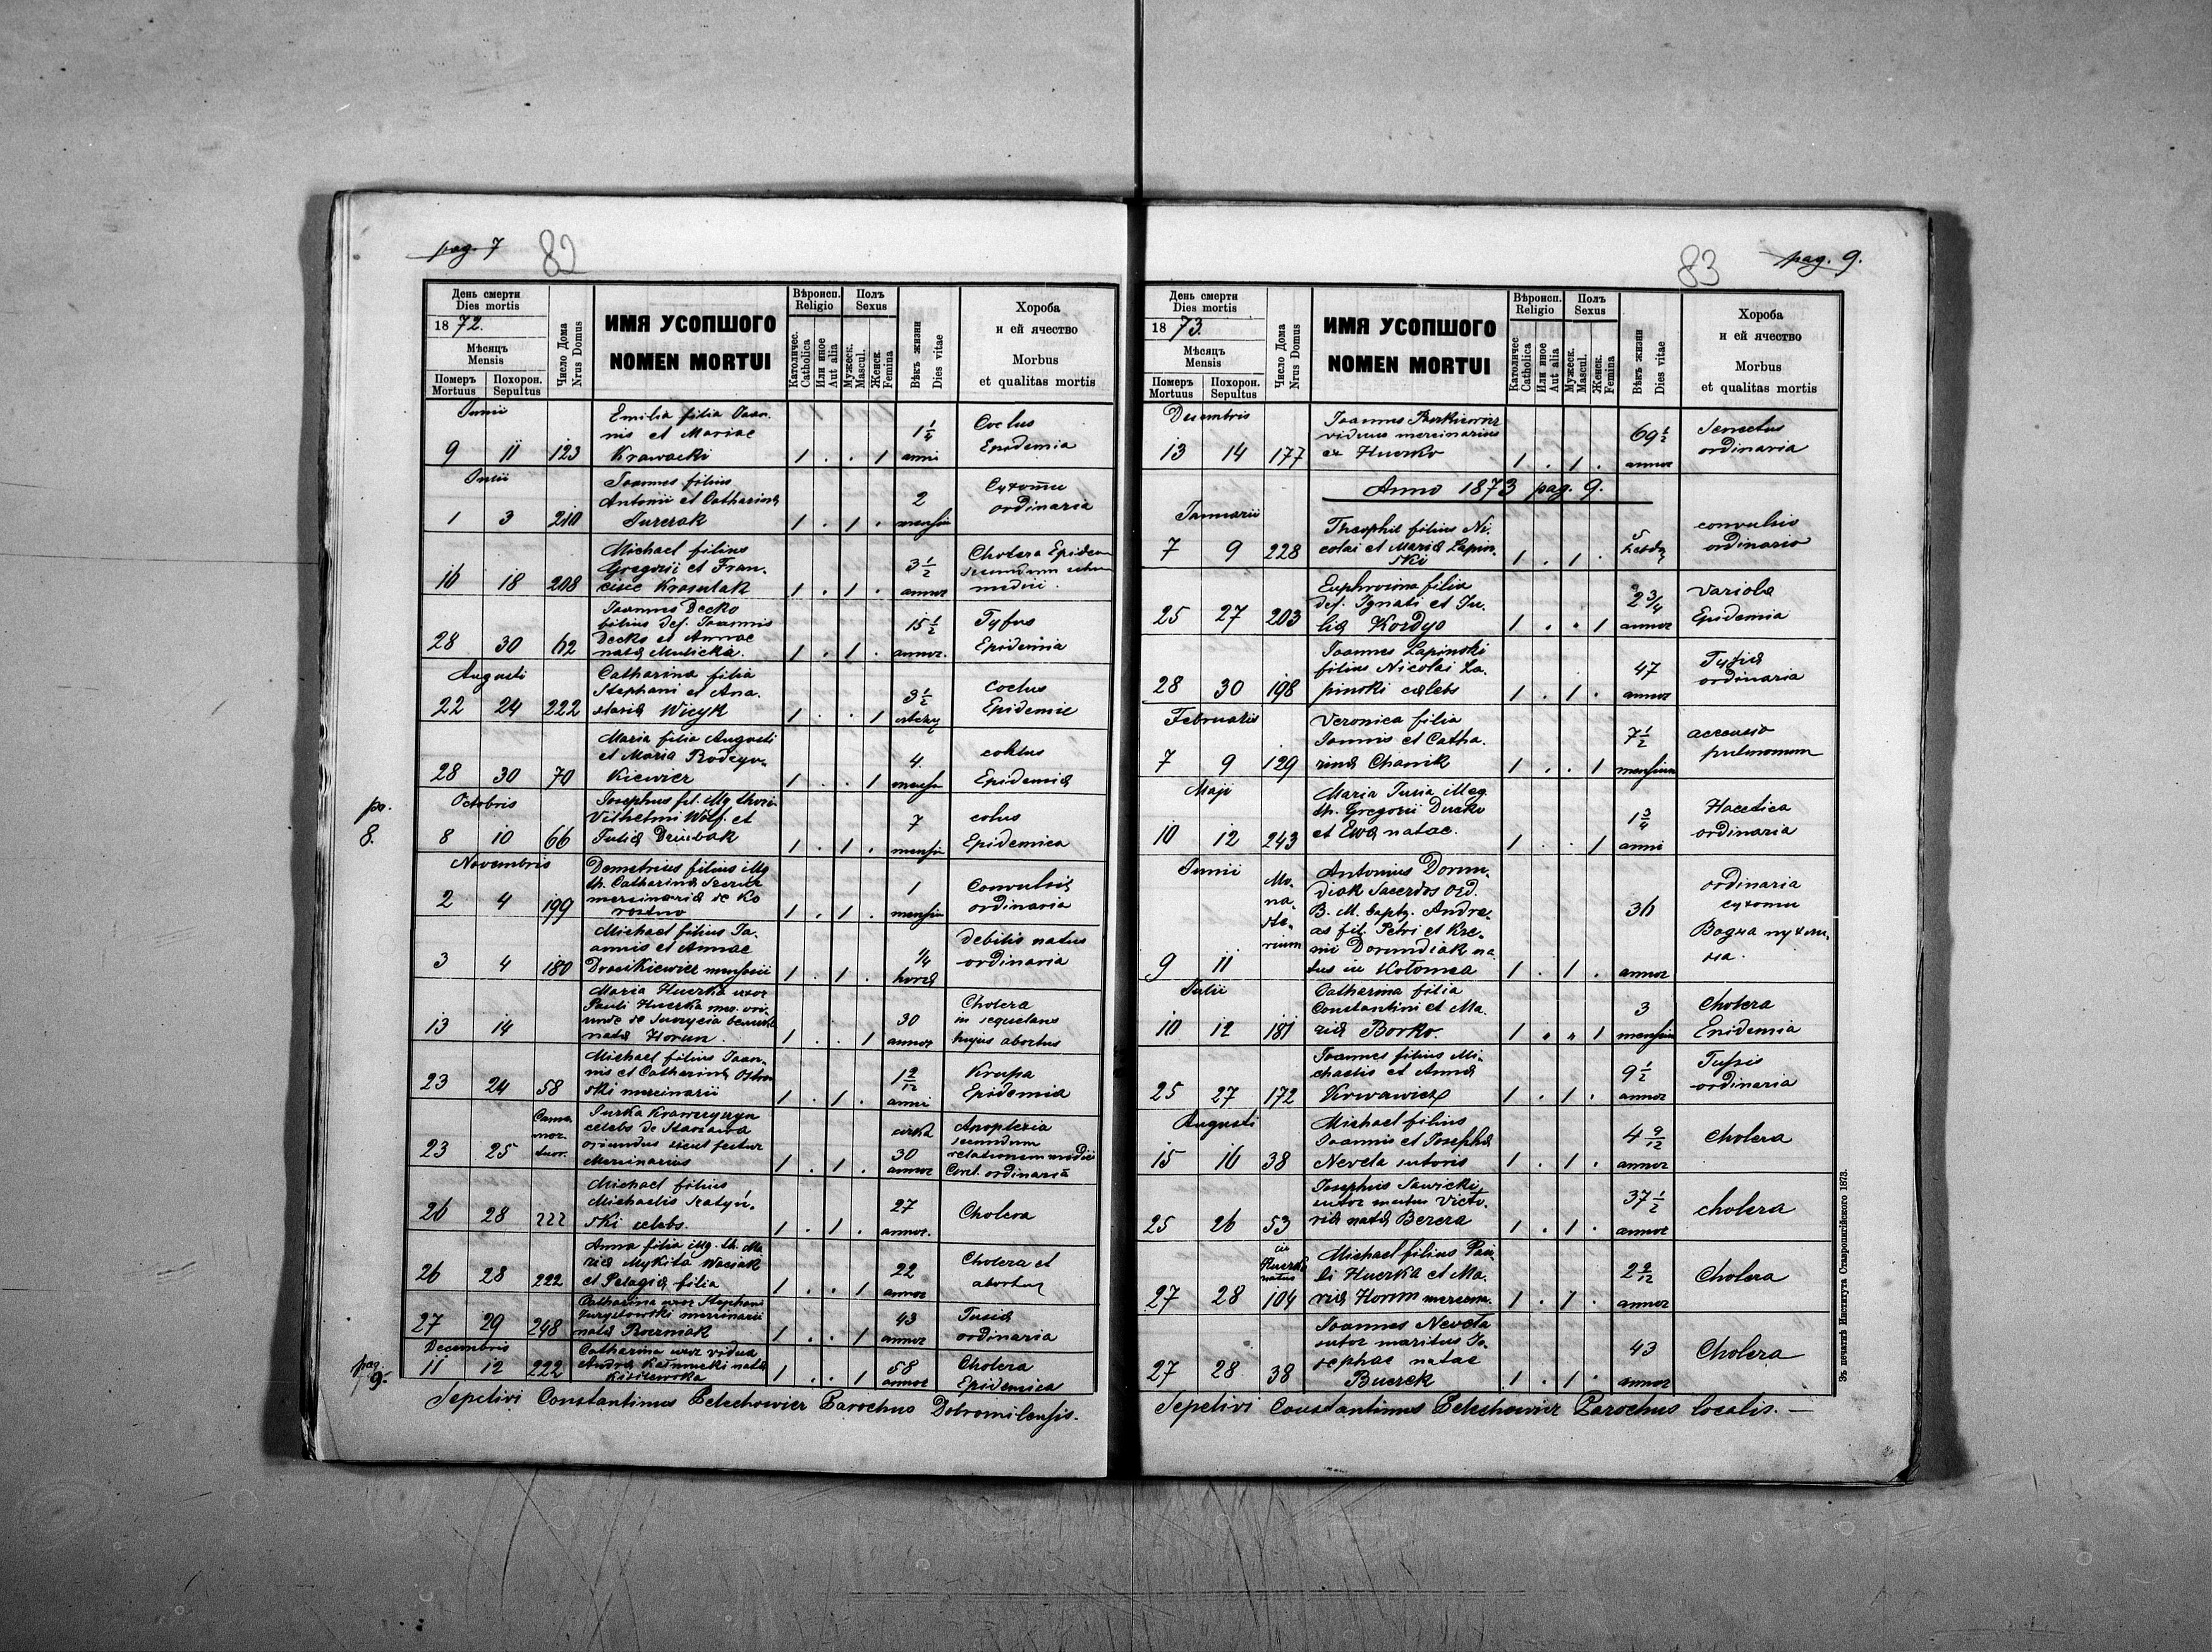 pag. 7
82
День смерти
Dies mortis
1872.
Мѣсяцъ
Mensis
Померъ
Mortuus
Похорон.
Sepultus
Число Дома
Nrus Domus
ИМЯ УСОПШОГО
NOMEN MORTUI
Вѣроисп.
Religio
Католичес.
Catholica
Или иное
Aut alia
Полъ
Sexus
Мужеск.
Mascul.
Женск.
Femina
Вѣкъ жизни
Dies vitae
Хороба
и ей ячество
Morbus
et qualitas mortis
Junii
9 11 123
Emilia filia Joan-
nis et Mariae
Krawacki
1 . . 1
1 1/4
anni
Coctus
Epidemia
Julii
1 3 210
Joannes filius
Antonii et Catharina
Jurczak
1 . 1 .
2
mensiu
Сухоты
ordinaria
16 18 208
Michael filius
Gregorii et Fran-
cisce
1 . 1 .
3 1/2
annor
Cholera Epidem
secundum
medici.
28 30 62
Joannes Decko
filius def. Joannis
Decko et Annae
nata Mulicka.
1 . 1 .
15 1/2
annor.
Tyfus
Epidemia
Augusti
22 24 222
Catharina filia
Stephani et Ana-
staria Wicyk
1 . . 1
3 1/2
coctus
Epidemie
28 30 70
Maria filia Augusti
et Maria
kiewicz
1 . . 1
4.
mensiu
Epidemia
pa.
8.
Octobris
8 10 66
Josephus fil. illg. thori
Vilhelmi Wolf. et
Julia
1 . 1 .
7
mensiu
Epidemica
Novembris
2 4 199
Demetrius filius illg
th. Catharina
mercinaria de Ko
rostno
1 . 1 .
1
mensiu
Convulsis
ordinaria
3 4 180
Michael filius Jo-
annis et Annae
1 . 1 .
1/4
hora
debilis natus
ordinaria
13 14
Maria Huerka uxor
Pauli Huerka
nata Horun.
1 . . 1
30
annor
Cholera
in sequelans
hujus abortus
23 24 58
Michael filius Joan-
nis et Catharina
ski mercinarii
1 . 1 .
1 2/12
anni
Krupa
Epidemia
23 25
Jurka
celebs de Starzawa
oriundus sicut fertur
Mercinarius
1 . 1 .
cirka
30
annor
Apoplexia
secundum
relationem medici
Cont. ordinaria
26 28 222
Michael filius
Michaelis
ski celebs.
1 . 1 .
27
annor.
Cholera
26 28 222
Anna filia illg. th. Ma
ria Mykita Wasiak
et Pelagia filia
1 . . 1
22
annor
Cholera et
abortus
27 29 248
Catharina uxor Stephani
mercinarii
nata
1 . . 1
43
annor
Tusia
ordinaria
pag.
9.
Decembris
11 12 222
Catharina uxor vidua
nata
1 . . 1
58
annor
Cholera
Epidemica
Sepelivi Constantinus Pelechowicz Parochus Dobromilensis.
83
pag. 9.
День смерти
Dies mortis
1873.
Мѣсяцъ
Mensis
Померъ
Mortuus
Похорон.
Sepultus
Число Дома
Nrus Domus
ИМЯ УСОПШОГО
NOMEN MORTUI
Вѣроисп.
Religio
Католичес
Catholica
Или иное
Aut alia
Полъ
Sexus
Мужеск.
Mascul.
Женск.
Femina
Вѣкъ жизни
Dies vitae
Хороба
и ей ячество
Morbus
et qualitas mortis
Decembris
13 14 177
Joannes
viduus mercinarius
ex Huczko
1 . 1 .
69 1/2
annor
Senectus
ordinaria
Anno 1873 pag. 9.
Januarii
7 9 228
Theophil filius Ni-
colai et Maria Lapin-
ski
1 . 1 .
5
convulsio
ordinario
25 27 203
Euphrosina filia
def. Ignati et Ju-
lia Kordyo
1 . . 1
2 3/4
annor
Variola
Epidemia
28 30 198
Joannes Lapinski
filius Nicolai La-
pinski celebs
1 . 1 .
47
annor
ordinaria
Februaris
7 9 129
Veronica filia
Joannis et Catha-
rina
1 . . 1
7 1/2
mensium
pulmonum
Maji
10 12 243
Maria Julia illeg.
th. Gregorii
et Ewa natae.
1 . . 1
1 3/4
anni
Haectica
ordinaria
Junii
9 11
Mo-
na-
ste-
rium
Antonius Dorun-
diak Sacerdos Ord.
B. M. bapt. Andre-
as fil. Petri et Kse-
ni Dorundiak na
tus in Kołomea
1 . 1 .
36
annor
ordinaria
сухоты
Водна пухли-
на.
Julii
10 12 181
Catharina filia
Constantini et Ma-
ria Borko.
1 . . 1
3
mensium
Cholera
Epidemia
25 27 172
Joannes filius Mi-
chaelis et Anna
1 . 1 .
9 1/2
annor
Tussis
ordinaria
Augusti
15 16 38
Michael filius
Joannis et Josepha
Neveta sutoris
1 . 1 .
4 9/12
annor
Cholera
25 26 53
Josephus Sawicki
sutor Victo-
ria nata Berera
1 . 1 .
37 1/2
annor
cholera
27 28
in
Huczko
natus
104
Michael filius Pau-
li Huerka et Ma-
ria Horun mercena.
1 . 1 .
2 9/12
annor
Cholera
27 28 38
Joannes Neveta
sutor maritus Jo-
sephae natae
Buczek
1 . 1 .
43
annor
Cholera
Sepelivi Constantinus Pelechowicz Parochus localis. —
Зъ печатнѣ Института Ставропигійского 1873.